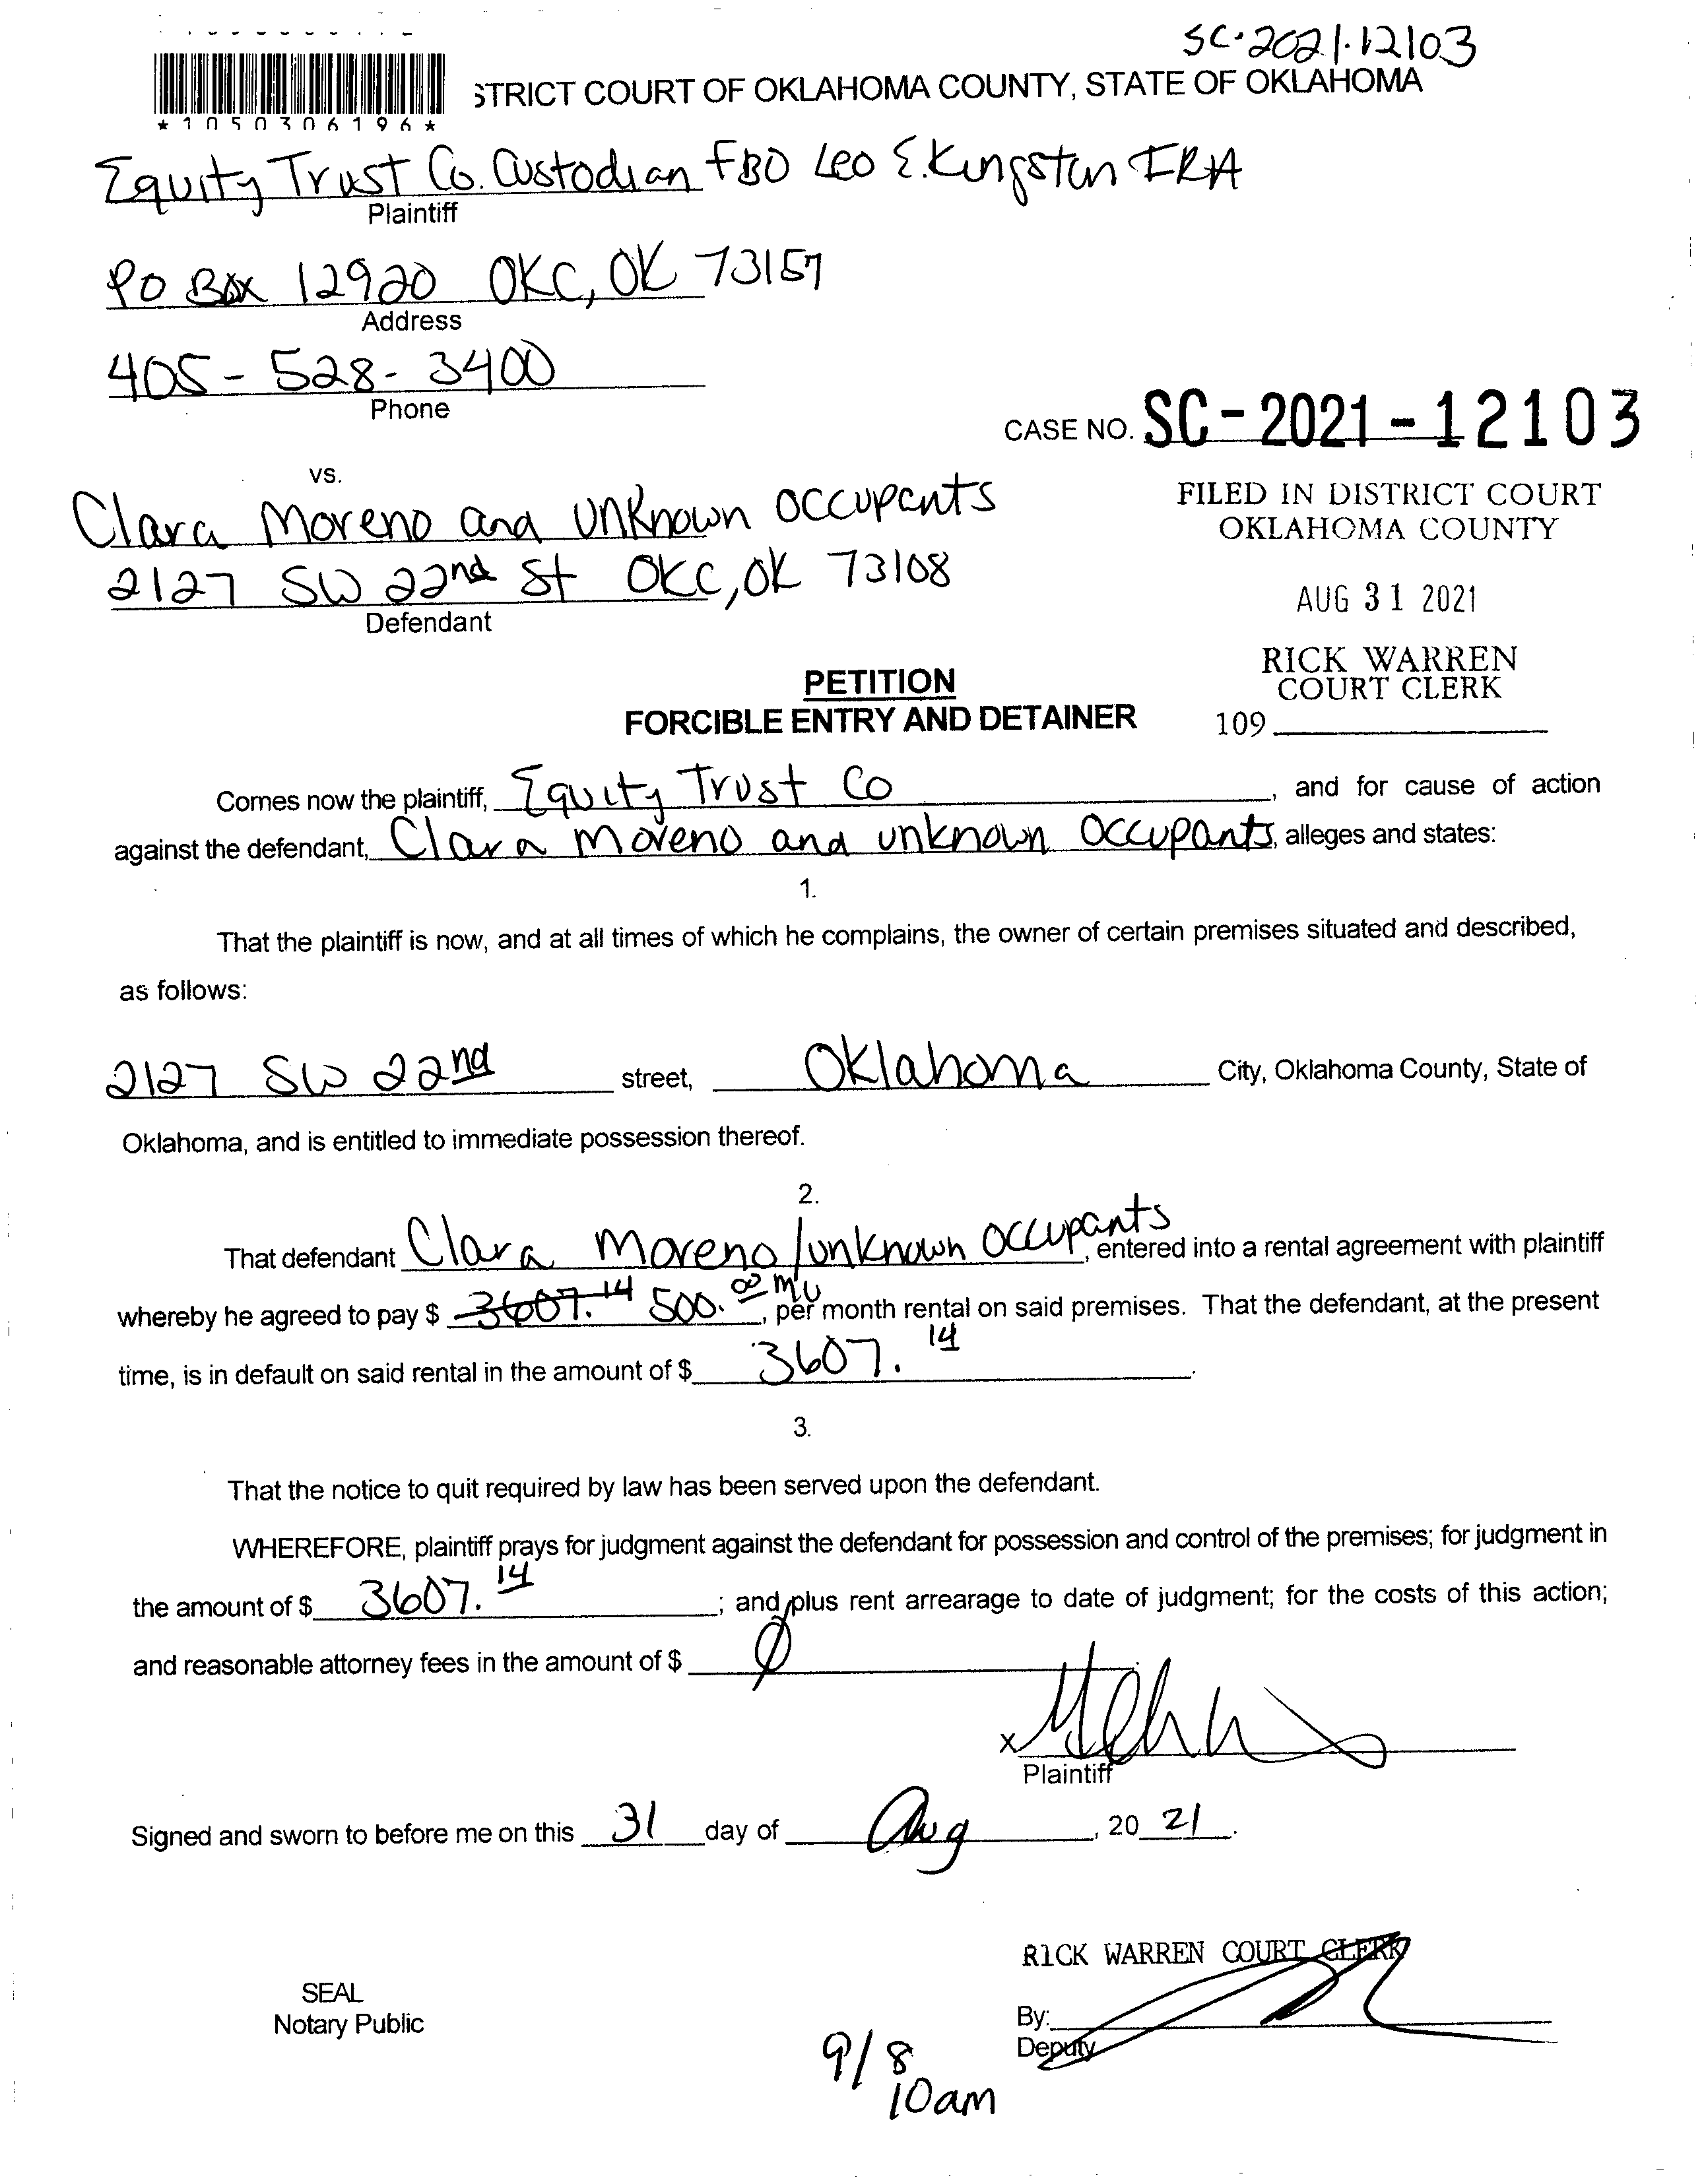 SC-2021-12103
STRICT COURT OF OKLAHOMA COUNTY, STATE OF OKLAHOMA
*1050306196*
Equity Trust Co. Custodian FBO Leo E. Kingston IRA
Plaintiff
PO Box 12920 OKC, OK 73157
Address
405-528-3400
Phone
CASE NO. SC-2021-12103
vs.
Clara Moreno and unknown occupants
2127 SW 22nd St OKC, OK 73108
Defendant
FILED IN DISTRICT COURT
OKLAHOMA COUNTY
AUG 31 2021
RICK WARREN
COURT CLERK
109
PETITION
FORCIBLE ENTRY AND DETAINER
Comes now the plaintiff, Equity Trust Co, and for cause of action
against the defendant, Clara Moreno and unknown Occupants, alleges and states:
1.
That the plaintiff is now, and at all times of which he complains, the owner of certain premises situated and described,
as follows:
2127 SW 22nd street, Oklahoma City, Oklahoma County, State of
Oklahoma, and is entitled to immediate possession thereof.
2.
That defendant Clara Moreno/unknown Occupants, entered into a rental agreement with plaintiff
whereby he agreed to pay $ 3607.14 500.00, per month rental on said premises. That the defendant, at the present
time, is in default on said rental in the amount of $ 3607.14.
3.
That the notice to quit required by law has been served upon the defendant.
WHEREFORE, plaintiff prays for judgment against the defendant for possession and control of the premises; for judgment in
the amount of $ 3607.14; and plus rent arrearage to date of judgment; for the costs of this action;
and reasonable attorney fees in the amount of $ Ø
x
Plaintiff
Signed and sworn to before me on this 31 day of Aug, 20 21.
RICK WARREN COURT CLERK
SEAL
Notary Public
By:
Deputy
9/8
10am